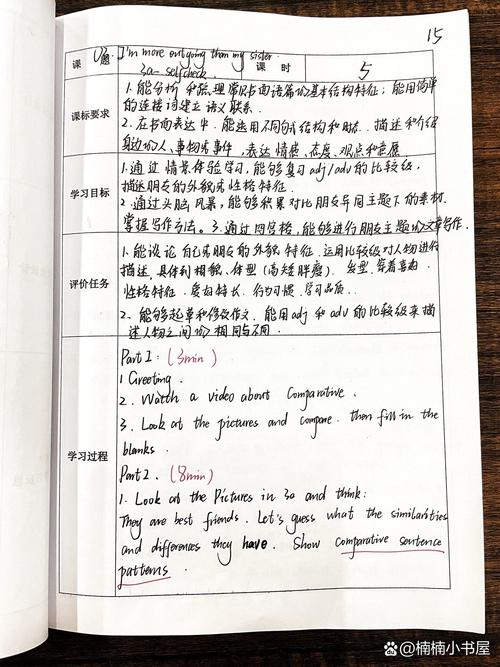 15
课 题 U3. I'm more outgoing than my sister. 3a-selfcheck. 课 时 5
课标要求
1. 能分析和梳理常见书面语篇的基本结构特征；能用简单
的连接词建立语义联系.
2. 在书面表达中，能运用不同句式结构和时态，描述和介绍
身边的人、事物或事件，表达情感、态度、观点和意愿
学习目标
1. 通过情景体验学习，能够复习adj/adv的比较级，
描述朋友的外貌或性格特征.
2. 通过头脑风暴，能够积累对比朋友异同主题下的素材，
掌握写作方法。3. 通过四宫格，能够进行朋友主题的文章写作.
评价任务
1. 能谈论自己或朋友的外貌特征，运用比较级对人物进行
描述，具体到相貌、体型（高矮胖瘦）、发型、穿着喜好
性格特征、爱好特长、行为习惯、学习品质.
2. 能够起草和修改作文，能用adj和adv的比较级来描
述人物之间的相同与不同.
学习过程
Part 1: (3min)
1 Greeting.
2. Watch a video about Comparative.
3. Look at the pictures and compare. then fill in the
blanks.
Part 2. (8min)
1. Look at the Pictures in 3a and think:
They are best friends. Let's guess what the similarities
and differences they have. Show comparative sentence
patterns.
@楠楠小书屋